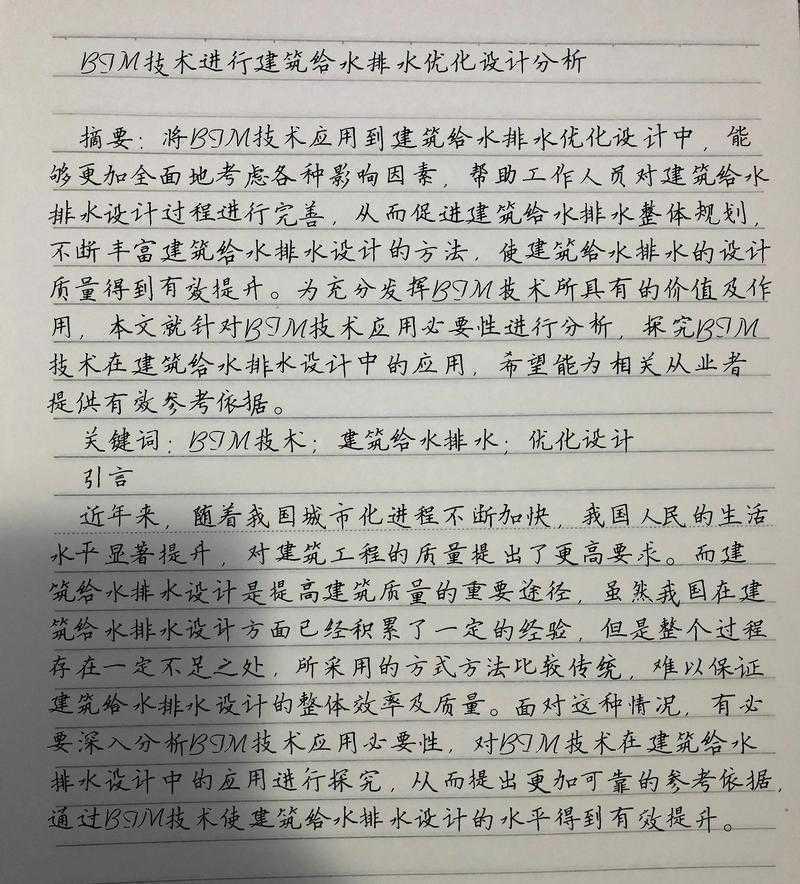 BIM技术进行建筑给水排水优化设计分析
摘要：将BIM技术应用到建筑给水排水优化设计中，能
够更加全面地考虑各种影响因素，帮助工作人员对建筑给水
排水设计过程进行完善，从而促进建筑给水排水整体规划，
不断丰富建筑给水排水设计的方法，使建筑给水排水的设计
质量得到有效提升。为充分发挥BIM技术所具有的价值及作
用，本文就针对BIM技术应用必要性进行分析，探究BIM
技术在建筑给水排水设计中的应用，希望能为相关从业者
提供有效参考依据。
关键词：BIM技术；建筑给水排水；优化设计
引言
近年来，随着我国城市化进程不断加快，我国人民的生活
水平显著提升，对建筑工程的质量提出了更高要求。而建
筑给水排水设计是提高建筑质量的重要途径，虽然我国在建
筑给水排水设计方面已经积累了一定的经验，但是整个过程
存在一定不足之处，所采用的方式方法比较传统，难以保证
建筑给水排水设计的整体效率及质量。面对这种情况，有必
要深入分析BIM技术应用必要性，对BIM技术在建筑给水
排水设计中的应用进行探究，从而提出更加可靠的参考依据，
通过BIM技术使建筑给水排水设计的水平得到有效提升。